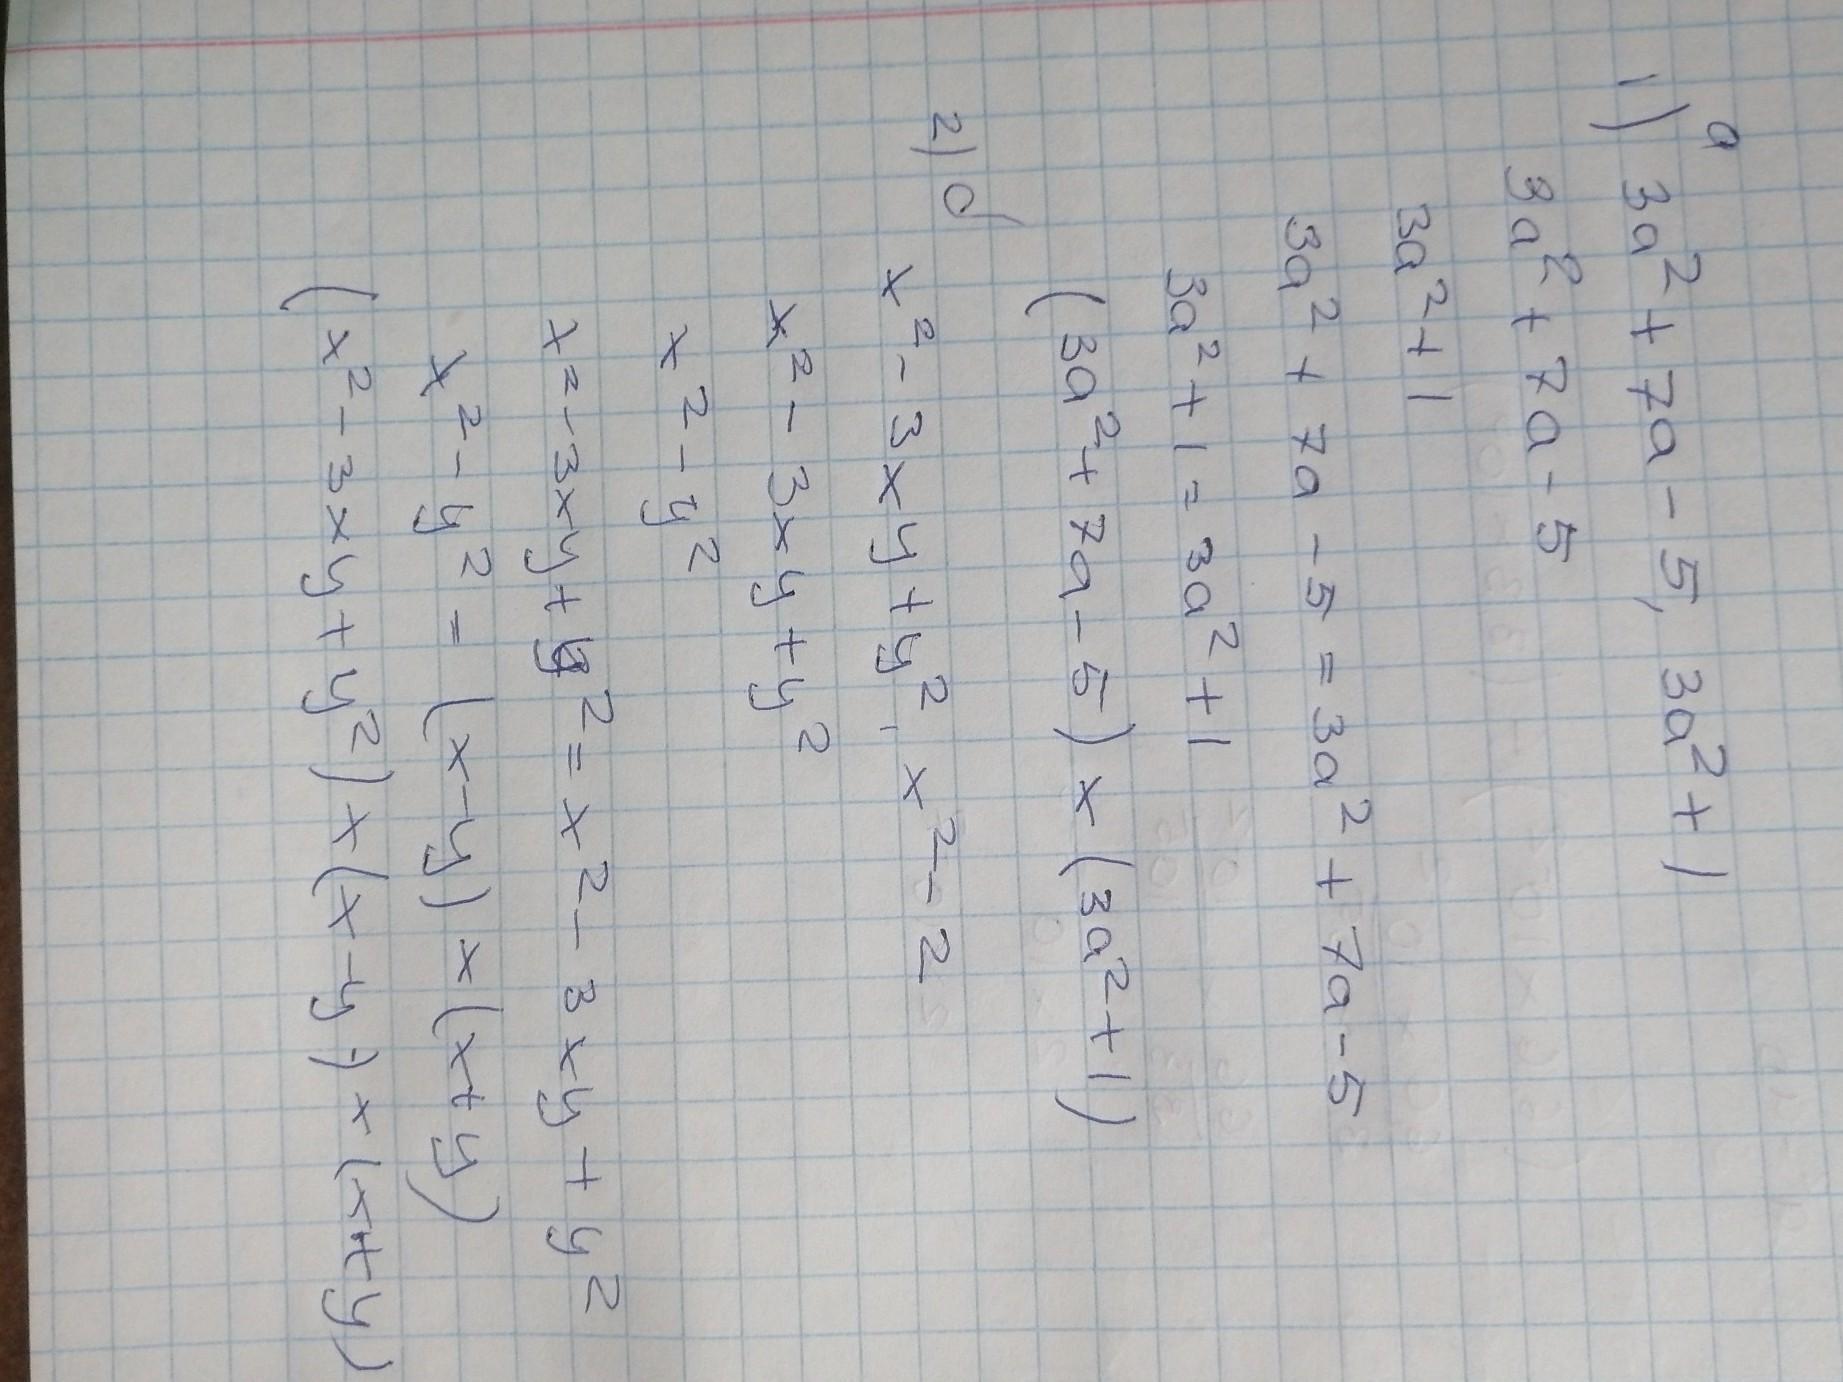 a
1) 3a² + 7a - 5, 3a² + 1
3a² + 7a - 5
3a² + 1
3a² + 7a - 5 = 3a² + 7a - 5
3a² + 1 = 3a² + 1
(3a² + 7a - 5) x (3a² + 1)
2) d
x² - 3xy + y², x² - 2
x² - 3xy + y²
x² - y²
x² - 3xy + y² = x² - 3xy + y²
x² - y² = (x - y) x (x + y)
(x² - 3xy + y²) x (x - y) x (x + y)